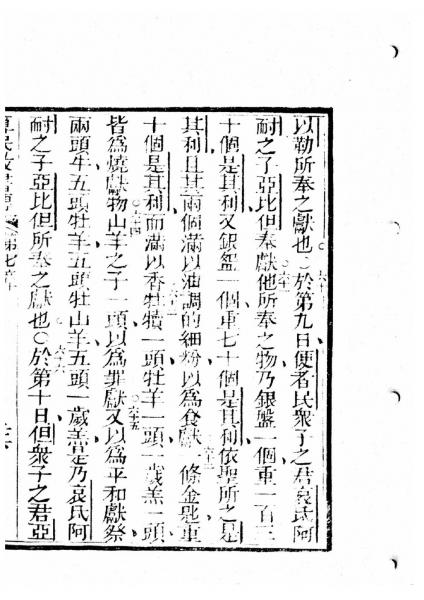 以勒所奉之獻也○六十於第九日便者民衆子之君哀氐阿
耐之子亞比但奉獻六十一他所奉之物乃銀盤一個重一百三
十個是其利又銀盌一個重七十個是其利依聖所之是
其利且其兩個滿以油調的細粉以爲食獻六十二一條金匙重
十個是其利而滿以香六十三牡犢一頭牡羊一頭一歲羔一頭
皆爲燒獻物六十四山羊之子一頭以爲罪獻六十五又以爲平和獻祭
兩頭牛五頭牡羊五頭牡山羊五頭一歲羔是乃哀氐阿
耐之子亞比但所奉之獻也○六十六於第十日但衆子之君亞